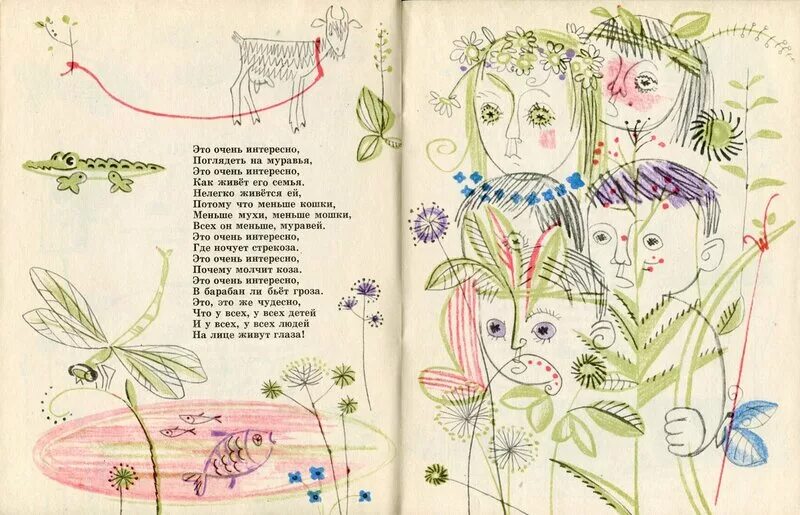 Это очень интересно,
Поглядеть на муравья,
Это очень интересно,
Как живёт его семья.
Нелегко живётся ей,
Потому что меньше кошки,
Меньше мухи, меньше мошки,
Всех он меньше, муравей.
Это очень интересно,
Где ночует стрекоза.
Это очень интересно,
Почему молчит коза.
Это очень интересно,
В барабан ли бьёт гроза.
Это, это же чудесно,
Что у всех, у всех детей
И у всех, у всех людей
На лице живут глаза!